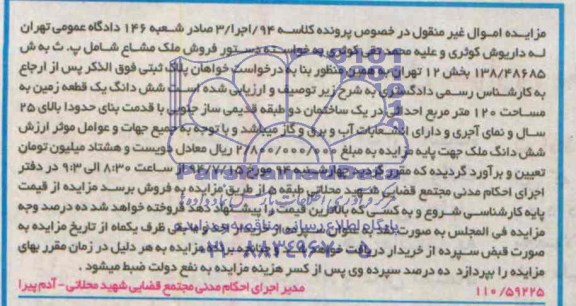 مزایده اموال غیر منقول در خصوص پرونده کلاسه ۹۴/اجرا/۳ صادر شعبه ۱۴۶ دادگاه عمومی تهران
له داریوش کوثری و علیه محمد تقی کوثری به خواسته دستور فروش ملک مشاع شامل پ. ث به ش
۱۳۸/۴۸۶۸۵ بخش ۱۲ تهران به همین منظور بنا به درخواست خواهان پلاک ثبتی فوق الذکر پس از ارجاع
به کارشناس رسمی دادگستری به شرح زیر توصیف و ارزیابی شده است شش دانگ یک قطعه زمین به
مساحت ۱۲۰ متر مربع احداثی در یک ساختمان دو طبقه قدیمی ساز جنوبی با قدمت بنای حدودا بالای ۲۵
سال و نمای آجری و دارای انشعابات آب و برق و گاز میباشد و با توجه به جمیع جهات و عوامل موثر ارزش
شش دانگ ملک جهت پایه مزایده به مبلغ ۲/۸۰۰/۰۰۰/۰۰۰ ریال معادل دویست و هشتاد میلیون تومان
تعیین و برآورد گردیده که مقرر گردید چهارشنبه مورخ ساعت ۸:۳۰ الی ۹:۳۰ در دفتر
اجرای احکام مدنی مجتمع قضایی شهید محلاتی طبقه ۵ از طریق مزایده به فروش برسد مزایده از قیمت
پایه کارشناسی شروع و به کسی که بالاترین قیمت را پیشنهاد دهد فروخته خواهد شد ده درصد وجه
مزایده فی المجلس به صورت به عنوان سپرده از خریدار اخذ مابقی ظرف یکماه از تاریخ مزایده به
صورت قبض سپرده از خریدار دریافت خواهد شد چنانچه برنده مزایده به هر دلیل در زمان مقرر بهای
مزایده را نپردازد ده درصد سپرده وی پس از کسر هزینه مزایده به نفع دولت ضبط میشود.
۱۱۰/۵۹۲۲۵ مدیر اجرای احکام مدنی مجتمع قضایی شهید محلاتی - آدم پیرا